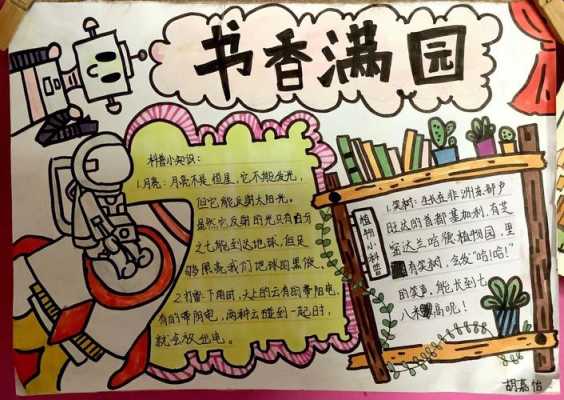 书香满园
科普小知识：
1.月亮：月亮不是恒星，它不能发光，
但它能反射太阳光。
虽然它反射的光只有百分
之七能到达地球，但足
够照亮我们地球的黑夜。
2.打雷：下雨时，天上的云有的带阳电，
有的带阴电，两种云碰到一起时，
就会放出电。
植物小科普
1.笑树：生长在非洲东部卢
旺达的首都基加利，有芝
密达兰哈德植物园，里
有笑树，会发“哈！哈！”
的笑声，能长到七
八米高呢！
胡嘉怡